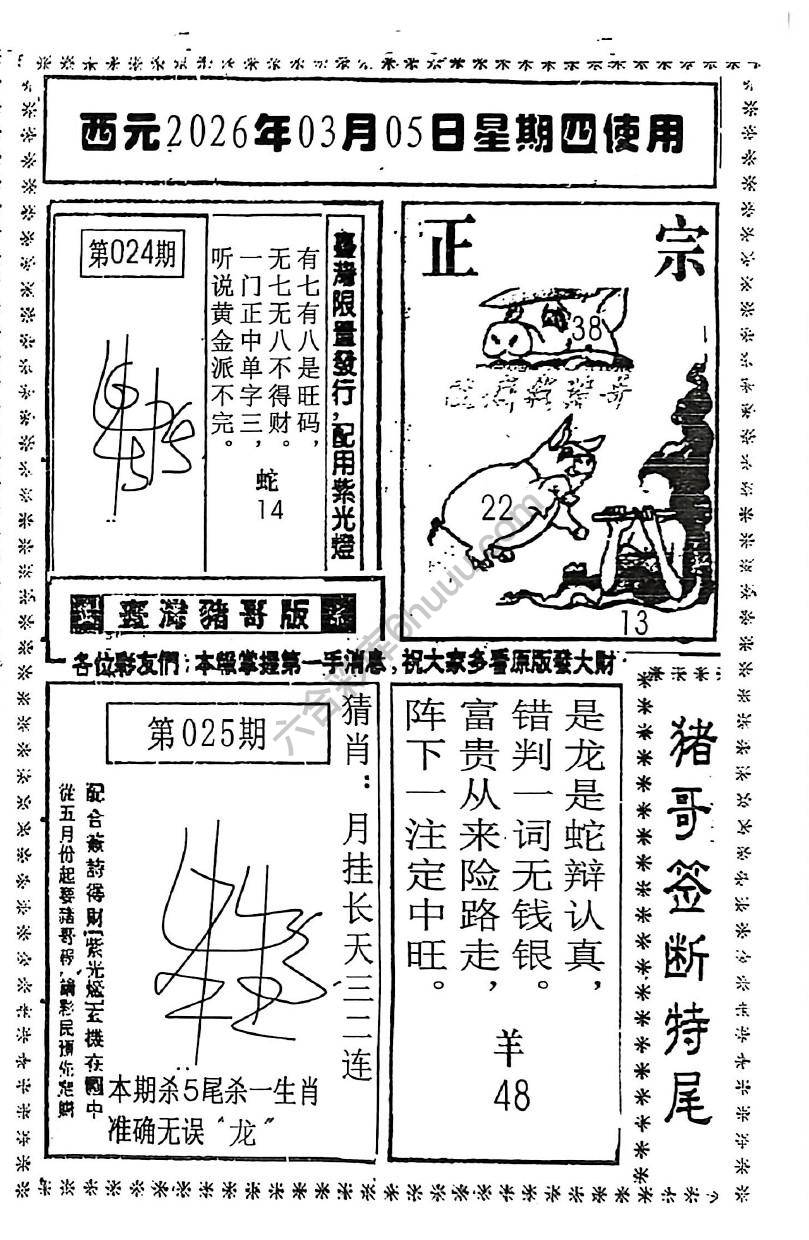 西元2026年03月05日星期四使用
第024期
臺灣限量發行,配用紫光燈
有七有八是旺码,
无七无八不得财。
一门正中单字三,
听说黄金派不完。
蛇
14
正宗
38
22
13
臺灣豬哥版
各位彩友們:本報掌握第一手消息,祝大家多看原版發大財
第025期
猜肖:月挂长天三二连
配合簽詩得財紫光燈玄機在圖中
從五月份起要豬哥報,請彩民預先定購
本期杀5尾杀一生肖
准确无误“龙”
是龙是蛇辩认真,
错判一词无钱银。
富贵从来险路走,
阵下一注定中旺。
羊
48
猪哥签断特尾
六合彩库6huuu.com